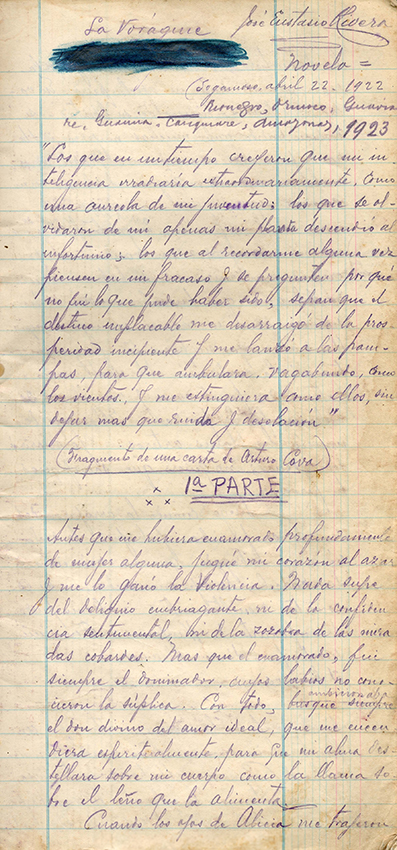 La Vorágine José Eustasio Rivera
Novela =
(Sogamoso, abril 22 - 1922
Rionegro, Orinoco, Guavia
re, Guainia, Casiquiare, Amazonas, 1923
"Los que en un tiempo creyeron que mi in
teligencia irradiaría extraordinariamente, como
una aureola de mi juventud; los que se ol-
vidaron de mí apenas mi planta descendió al
infortunio; los que al recordarme alguna vez
piensen en un fracaso y se pregunten por qué
no fui lo que pude haber sido, sepan que el
destino implacable me desarraigó de la pros-
peridad incipiente y me lanzó a las pam-
pas, para que ambulara, vagabundo, como
los vientos, y me extinguiera como ellos, sin
dejar mas que ruido y desolación"
(Fragmento de una carta de Arturo Cova)
1a PARTE
x x x
Antes que me hubiera enamorado profundamente
de mujer alguna, jugué mi corazón al azar
y me lo ganó la Violencia. Nada supe
del deliquio embriagante, ni de la confiden
cia sentimental, ni de la zozobra de las mira
das cobardes. Mas que el enamorado, fui
siempre el dominador, cuyos labios no cono-
cieron la súplica. Con todo, ambicionaba siempre
el don divino del amor ideal, que me encen
diera espiritualmente, para que mi alma des-
tellara sobre mi cuerpo como la llama so-
bre el leño que la alimenta.
Cuando los ojos de Alicia me trajeron